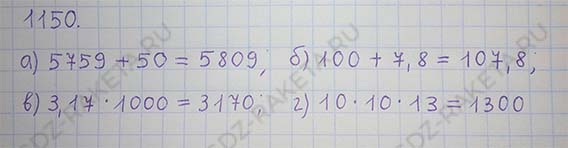 1150.
а) 5759 + 50 = 5809; б) 100 + 7,8 = 107,8;
в) 3,17 · 1000 = 3170; г) 10 · 10 · 13 = 1300
GDZ-RAKETA.RU